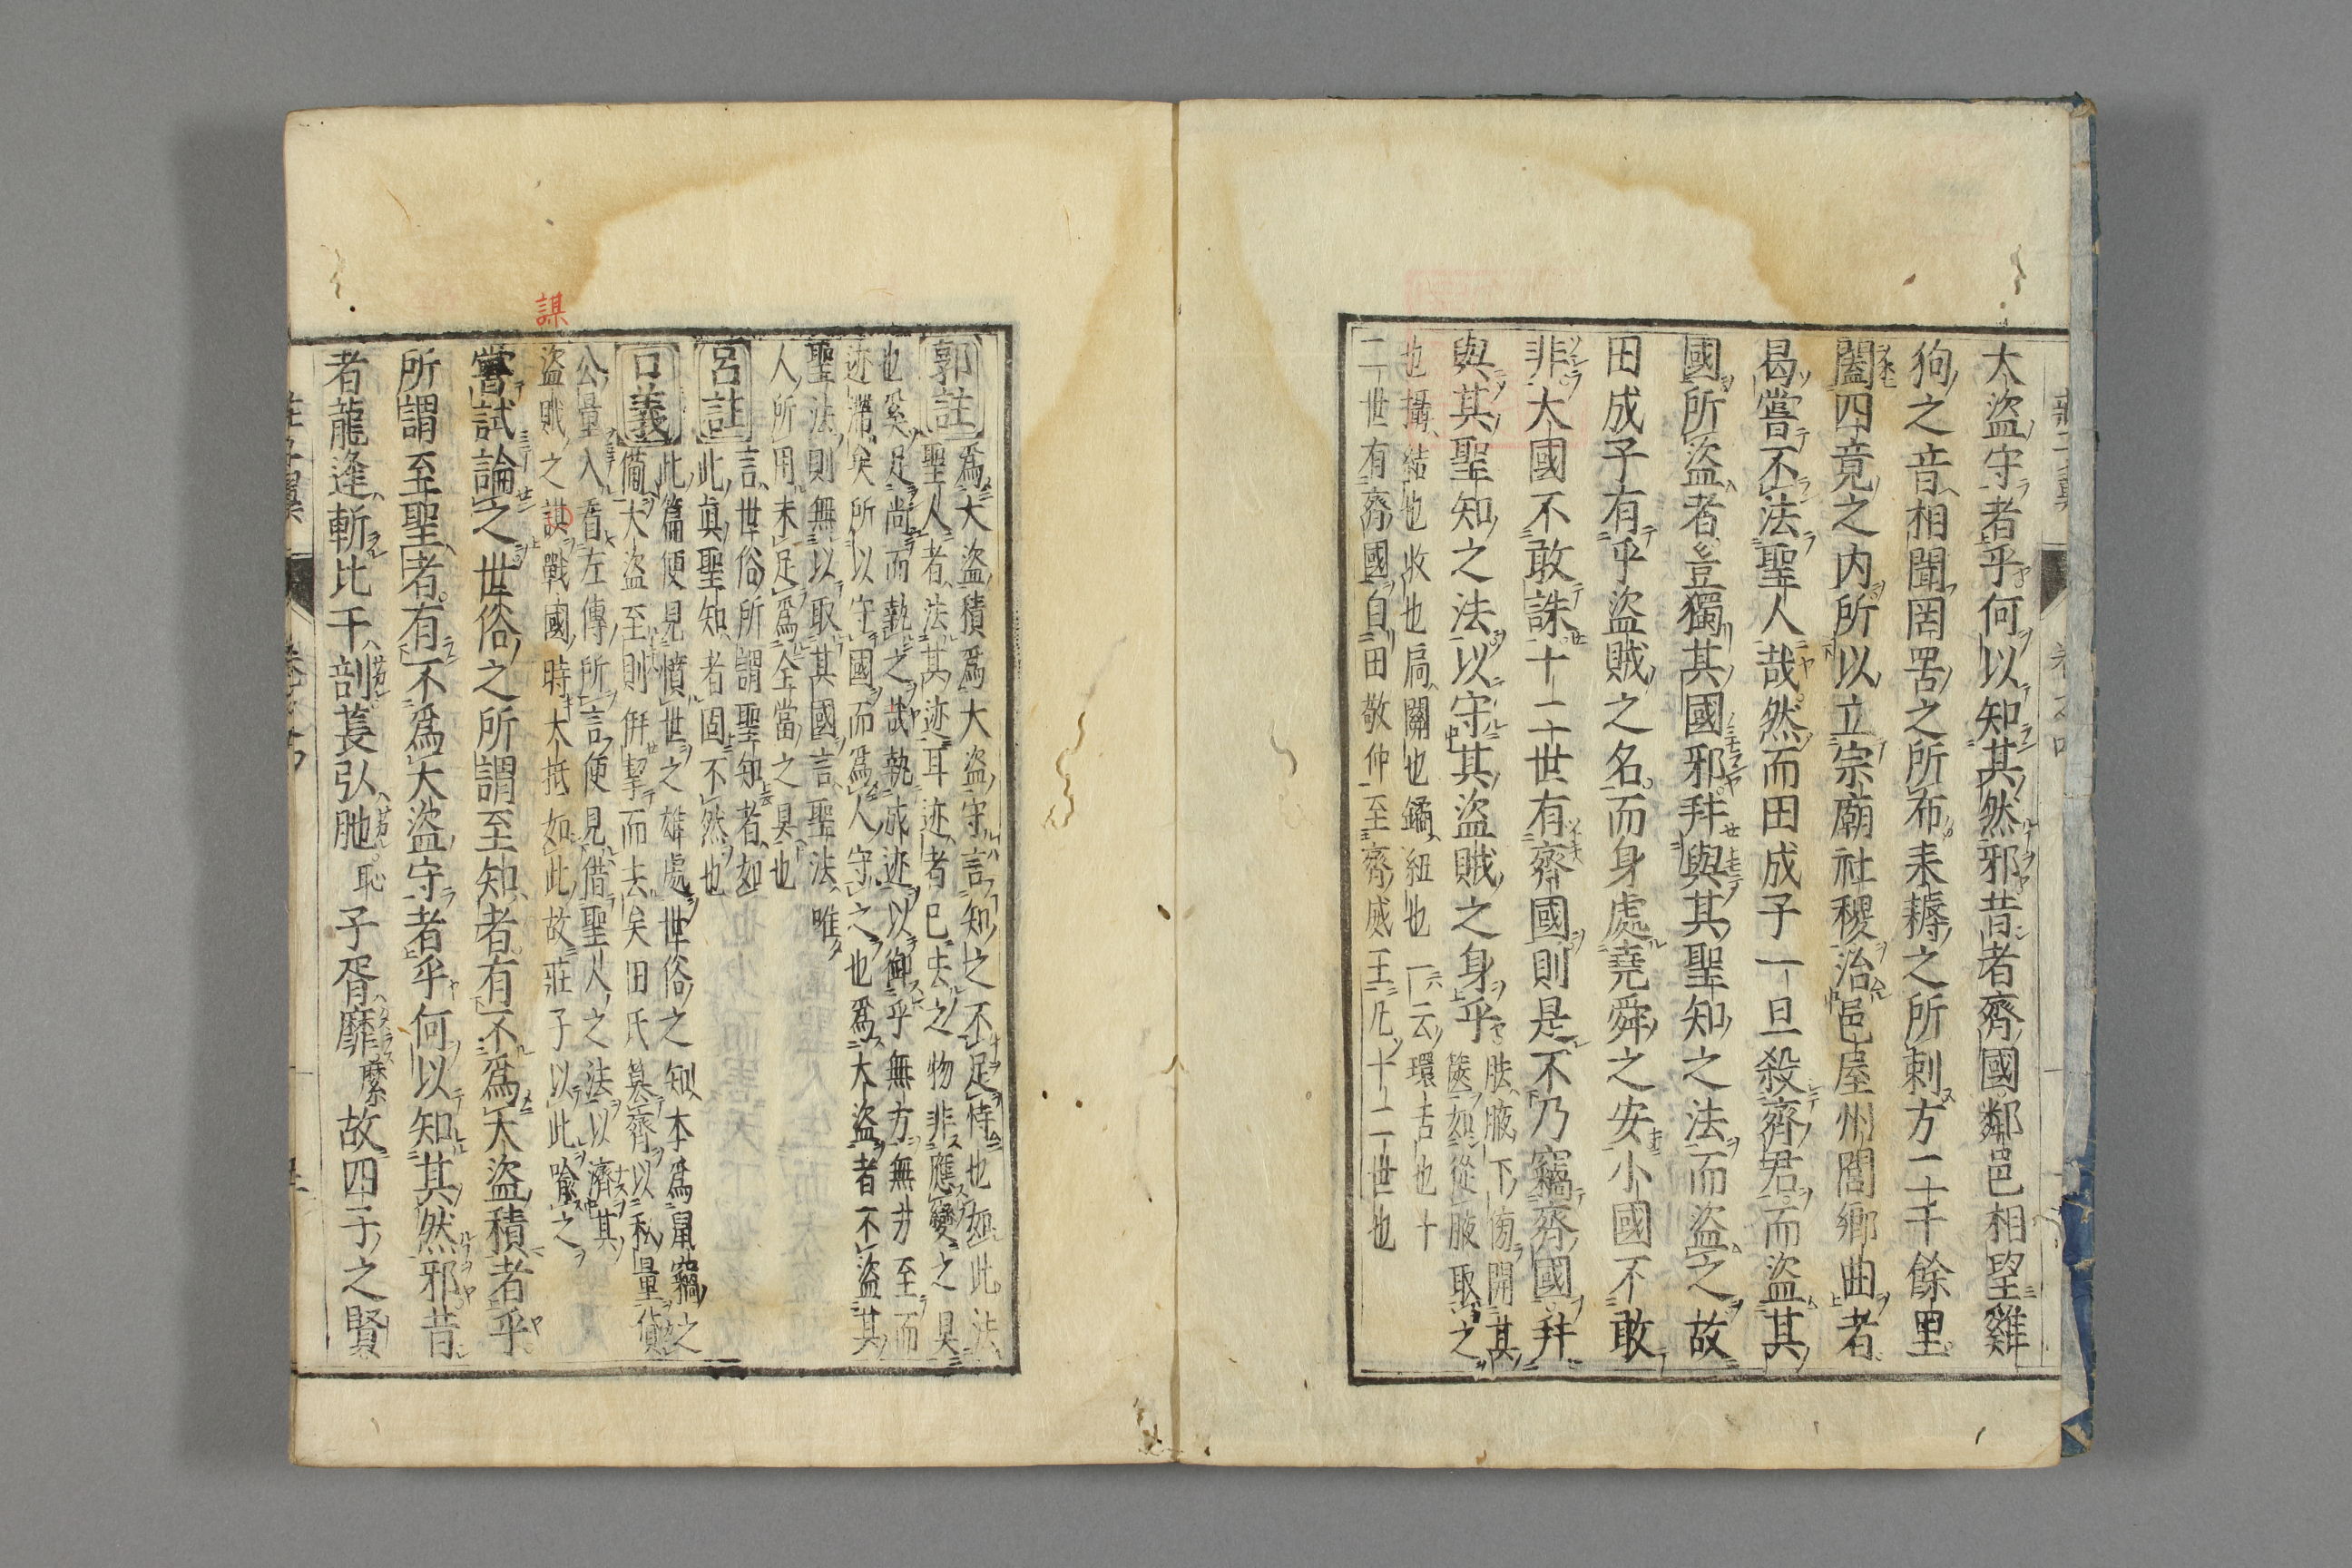 大盜守者乎何以知其然邪昔者齊國鄰邑相望雞
狗之音相聞罔罟之所布耒耨之所刺方二千餘里
闔四竟之内所以立宗廟社稷治邑屋州閭鄉曲者
曷嘗不法聖人哉然而田成子一旦殺齊君而盜其
國所盜者豈獨其國邪幷與其聖知之法而盜之故
田成子有乎盜賊之名而身處堯舜之安小國不敢
非大國不敢誅十二世有齊國則是不乃竊齊國幷
與其聖知之法以守其盜賊之身乎
胠腋下傍開其
篋如從腋取之
也攝結也收也扃關也鐍紐也一云環舌也十
二世有齊國自田敬仲至齊威王凡十二世也
郭註
爲大盜積爲大盜守言知之不足恃也如此法
聖人者法其迹耳迹者已去之物非應變之具
也奚足尚而執之哉執成迹以御乎無方無方至而
迹滯矣所以守國而爲人守之也爲大盜者不盜其
聖法則無以取其國言聖法唯
人所用未足爲全當之具也
呂註
言世俗所謂聖知者如
此眞聖知者固不然也
口義
此篇便見憤世之雄處世俗之知本爲鼠竊之
備大盜至則併挈而去矣田氏簒齊以私量貸
公量入看左傳所言便見借聖人之法以濟其
盜賊之謀戰國時大抵如此故莊子以此喩之
謀
嘗試論之世俗之所謂至知者有不爲大盜積者乎
所謂至聖者有不爲大盜守者乎何以知其然邪昔
者龍逢斬比干剖萇弘胣恥子胥靡縻故四子之賢